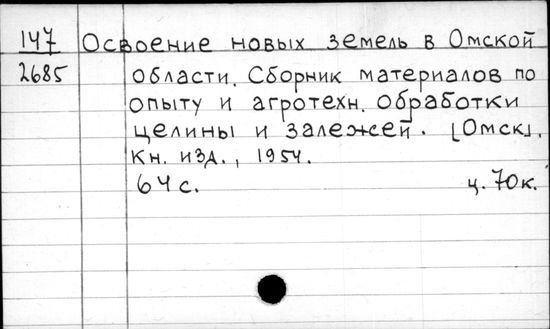 147 Освоение новых земель в Омской
2685 области. Сборник материалов по
опыту и агротехн. обработки
целины и залежей. [Омск].
Кн. изд., 1954.
64 с. ц. 70к.